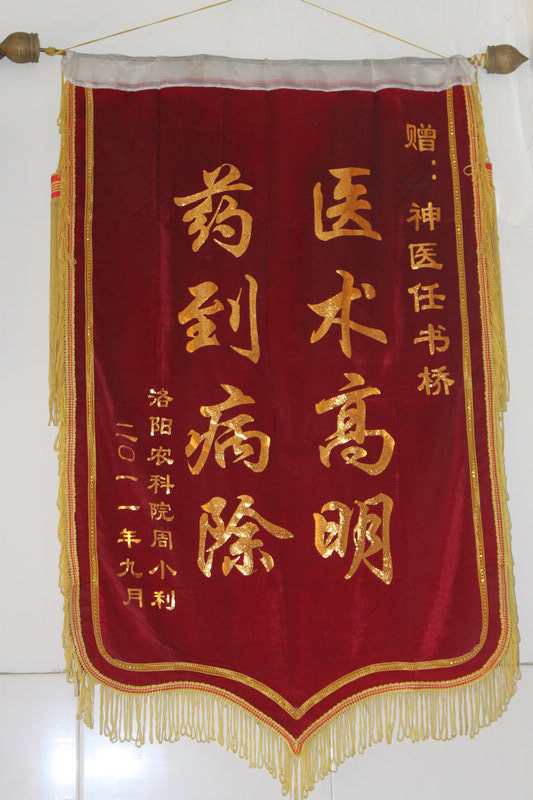 赠：神医任书桥
医术高明
药到病除
洛阳农科院周小利
二〇一一年九月